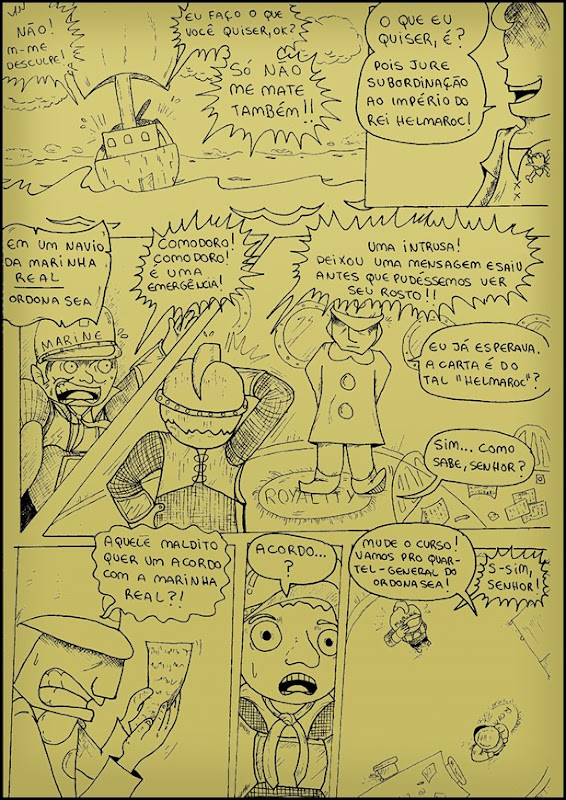 NÃO!
M-ME
DESCULPE!
EU FAÇO O QUE
VOCÊ QUISER, OK?
SÓ NÃO
ME MATE
TAMBÉM!!
O QUE EU
QUISER, É?
POIS JURE
SUBORDINAÇÃO
AO IMPÉRIO DO
REI HELMAROC!
EM UM NAVIO
DA MARINHA
REAL
ORDONA SEA
COMODORO!
COMODORO!
É UMA
EMERGÊNCIA!
UMA INTRUSA!
DEIXOU UMA MENSAGEM E SAIU
ANTES QUE PUDÉSSEMOS VER
SEU ROSTO!!
MARINE
EU JÁ ESPERAVA.
A CARTA É DO
TAL "HELMAROC"?
SIM... COMO
SABE, SENHOR?
ROYALTY
AQUELE MALDITO
QUER UM ACORDO
COM A MARINHA
REAL?!
ACORDO...
?
MUDE O CURSO!
VAMOS PRO QUAR-
TEL-GENERAL DO
ORDONA SEA!
S-SIM,
SENHOR!